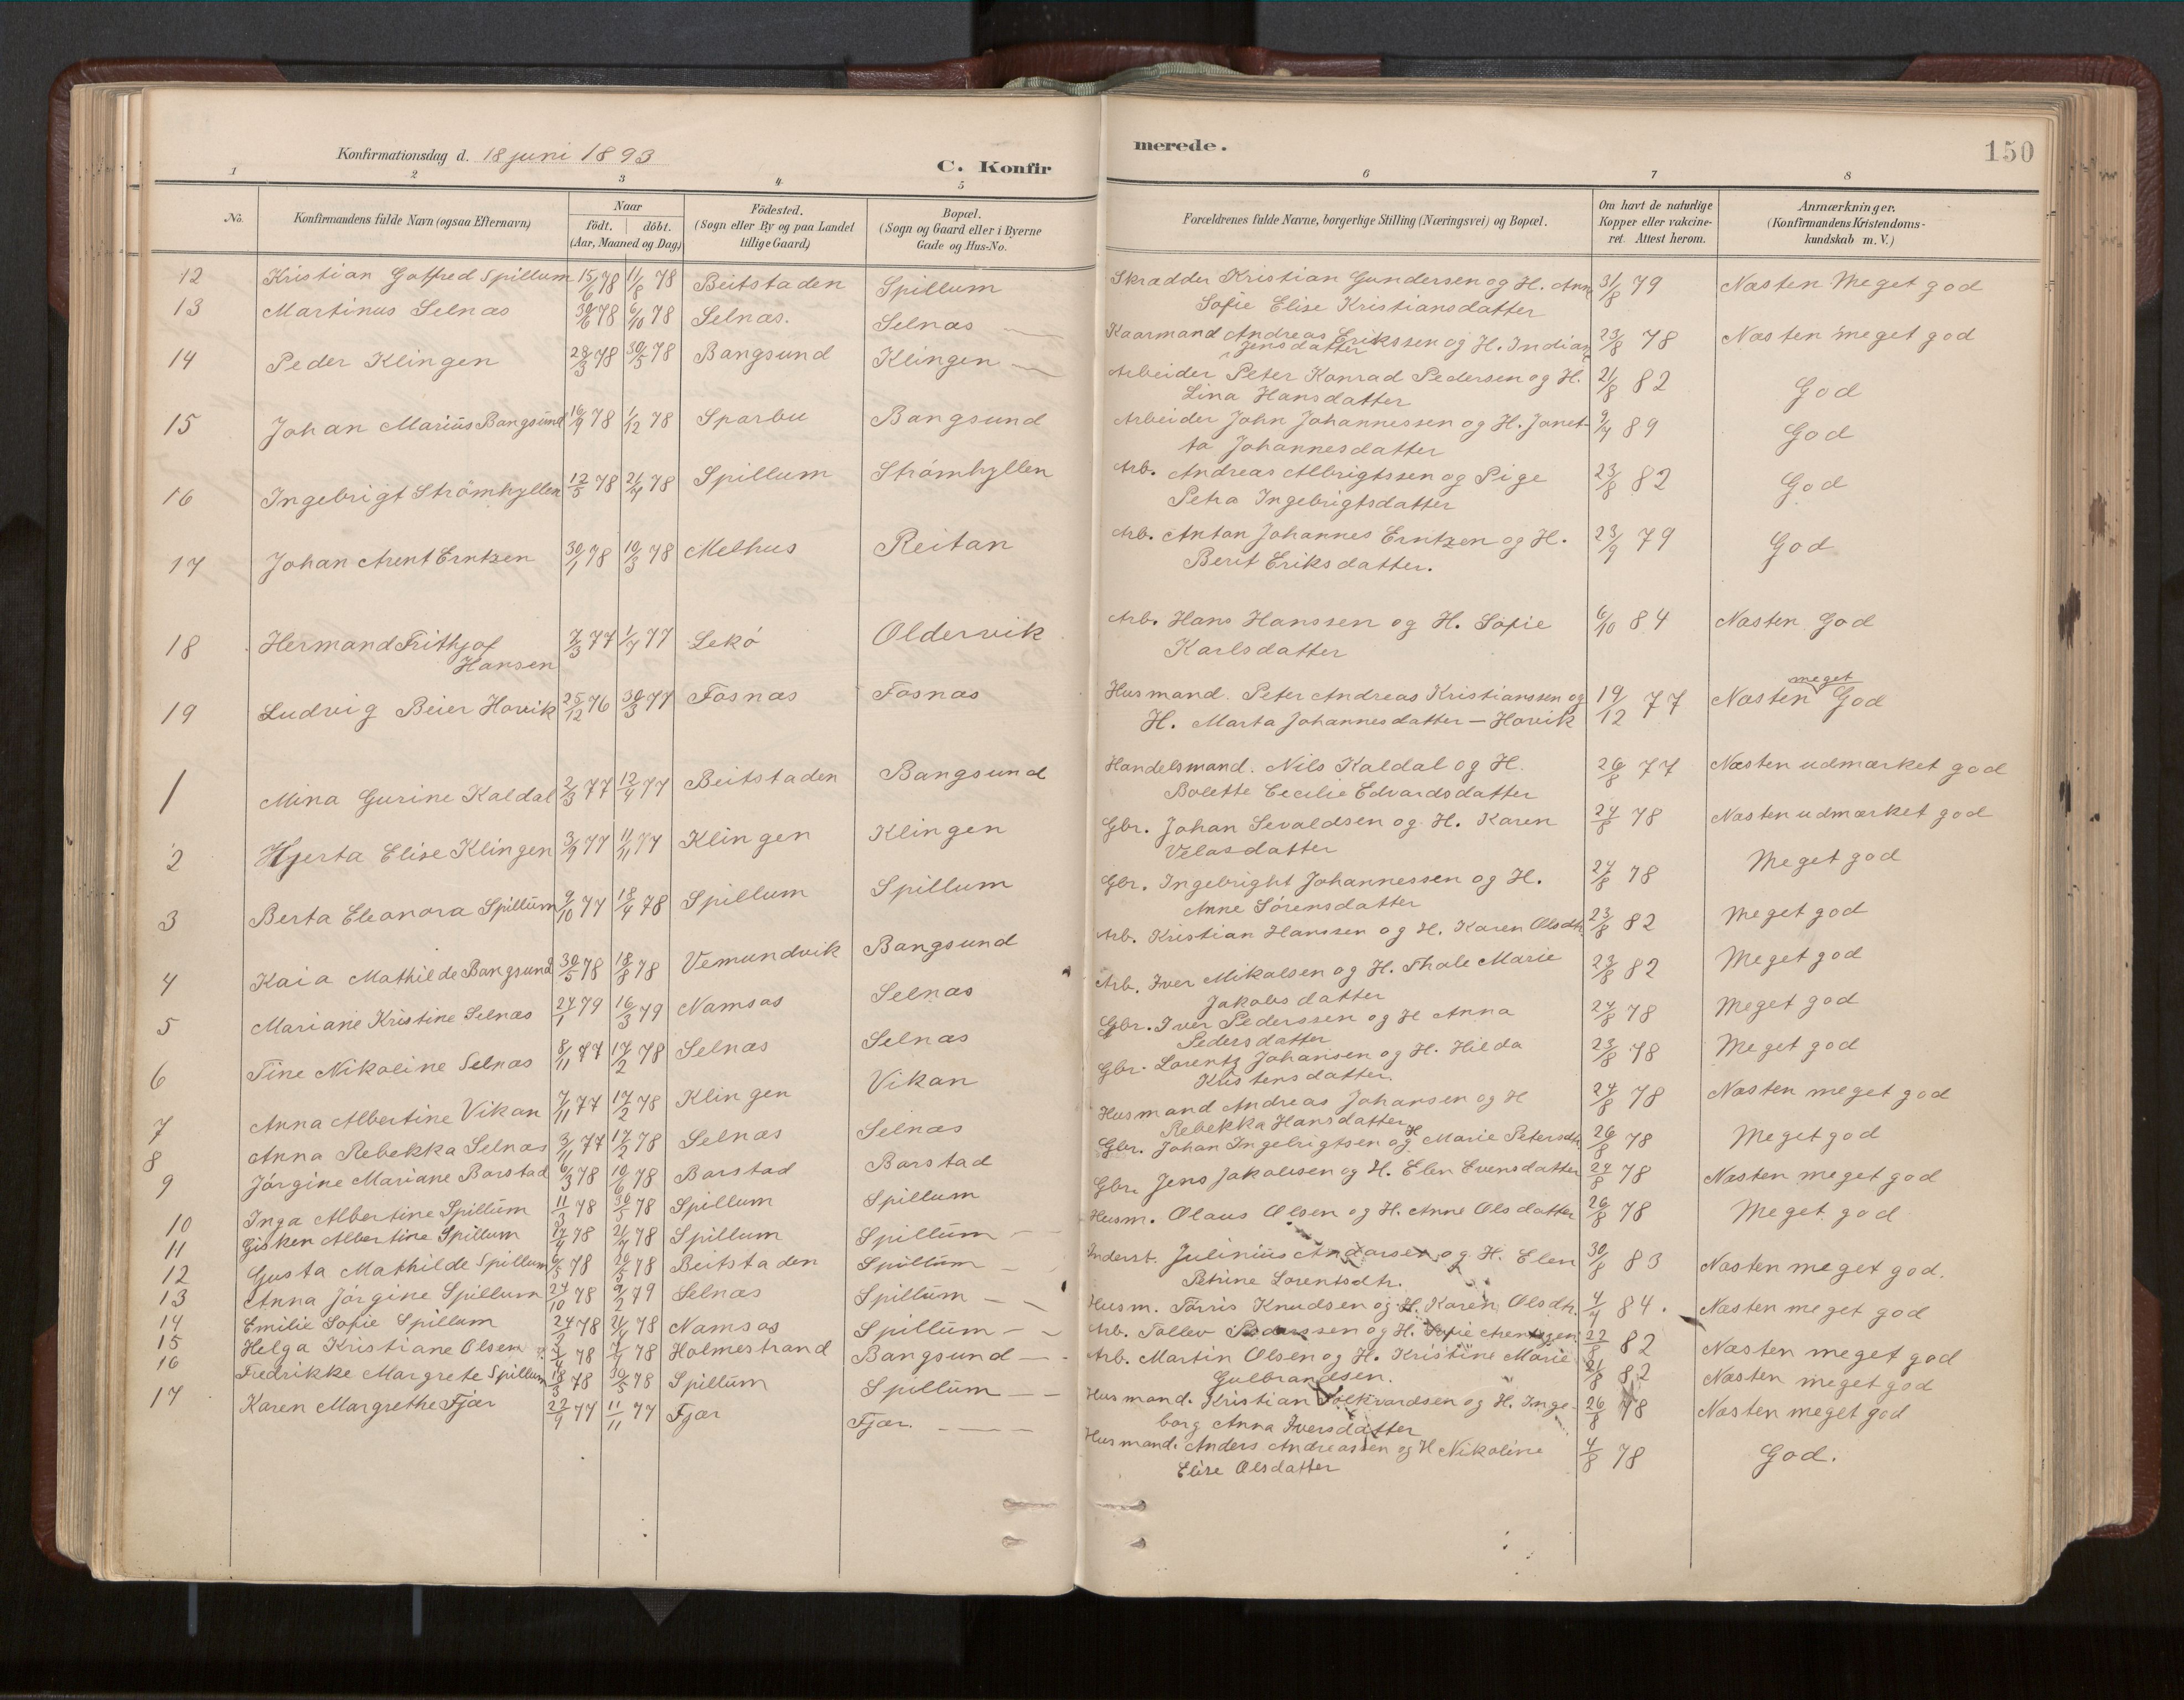 Konfirmationsdag d. 18 juni 1893
C. Konfirmerede.
150
1 2 3 4 5 6 7 8
No. Konfirmandens fulde Navn (ogsaa Efternavn) Naar födt. döbt. (Aar, Maaned og Dag) Födested. (Sogn eller By og paa Landet tillige Gaard) Bopæl. (Sogn og Gaard eller i Byerne Gade og Hus-No. Forældrenes fulde Navne, borgerlige Stilling (Næringsvei) og Bopæl. Om havt de naturlige Kopper eller vakcineret. Attest herom. Anmærkninger. (Konfirmandens Kristendomskundskab m. V.)
12 Kristian Gotfred Spillum 15/6 78 11/8 78 Beitstaden Spillum Skrædder Kristian Gundersen og H. Anne 31/8 79 Næsten Meget god
Sofie Elise Kristiansdatter
13 Martinus Selnæs 30/6 78 6/10 78 Selnæs. Selnæs Kaarmand Andreas Erikssen og H. Indiane 23/8 78 Næsten meget god
Jensdatter
14 Peder Klingen 28/3 78 30/5 78 Bangsund Klingen Arbeider Peter Konrad Pedersen og H. 21/8 82 God
Lina Hansdatter
15 Johan Marius Bangsund 16/9 78 1/12 78 Sparbu Bangsund Arbeider John Johannessen og H. Janet- 9/4 89 God
ta Johannesdatter
16 Ingebrigt Strömhyllen 12/5 78 21/4 78 Spillum Strömhyllen Arb. Andreas Albrigtssen og Pige 23/8 82 God
Petra Ingebrigtsdatter
17 Johan Arent Erntzen 30/1 78 10/3 78 Melhus Reitan Arb. Anton Johannes Erntzen og H. 23/9 79 God
Berit Eriksdatter.
18 Hermand Frithjof Hansen 7/3 77 1/7 77 Lekö Oldervik Arb. Hans Hanssen og H. Sofie 6/10 84 Næsten God
Karlsdatter
19 Ludvig Beier Hovik 25/12 76 30/3 77 Fosnæs Fosnæs Husmand. Peter Andreas Kristianssen og 19/12 77 Næsten meget God
H. Marta Johannesdatter - Horvik
1 Mina Gurine Kaldal 2/3 77 12/4 77 Beitstaden Bangsund Handelsmand. Nils Kaldal og H. 26/8 77 Næsten udmærket god
Bolette Cecilie Edvardsdatter
2 Hjerta Elise Klingen 3/9 77 11/11 77 Klingen Klingen Gbr. Johan Sevaldsen og H. Karen 24/8 78 Næsten udmærket god
Velasdatter
3 Berta Eleonora Spillum 9/10 77 18/4 78 Spillum Spillum Gbr. Ingebright Johannessen og H. 24/8 78 Meget god
Anne Sörensdatter
4 Kaia Mathilde Bangsund 30/5 78 18/8 78 Vemundvik Bangsund Arb. Kristian Hanssen og H. Karen Olsdtr. 23/8 82 Meget god
5 Mariane Kristine Selnæs 24/1 79 16/3 79 Namsos Selnæs Arb. Iver Mikalsen og H. Thale Marie 23/8 82 Meget god
Jakobsdatter
6 Tine Nikoline Selnæs 8/11 77 17/2 78 Selnæs Selnæs Gbr. Iver Pederssen og H Anna 24/8 78 Meget god
Pedersdatter
7 Anna Albertine Vikan 7/11 77 17/2 78 Klingen Vikan Gbr. Lorentz Johansen og H. Hilda 23/8 78 Meget god
Kristensdatter.
8 Anna Rebekka Selnæs 3/11 77 17/2 78 Selnæs Selnæs Husmand Andreas Johansen og H 24/8 78 Næsten meget god
Rebekka Hansdatter
9 Jörgine Mariane Barstad 6/3 78 10/6 78 Barstad Barstad Gbr. Johan Ingebrigtsen og H Marie Petersdtr 26/8 78 Meget god
10 Inga Albertine Spillum 11/3 78 30/5 78 Spillum Spillum Gbr. Jens Jakobsen og H. Elen Evensdatter 24/8 78 Næsten meget god
11 Gisken Albertine Spillum 17/4 78 21/7 78 Spillum Spillum Husm. Olaus Olsen og H. Anne Olsdatter 26/8 78 Meget god
12 Gusta Mathilde Spillum 6/5 78 26/5 78 Beitstaden Spillum Inderst. Julinius Andorsen og H. Elen 30/8 83 Næsten meget god.
Petrine Lorentsdtr.
13 Anna Jörgine Spillum 24/10 78 9/2 79 Selnæs Spillum Husm. Torris Knudsen og H. Karen Olsdtr. 4/4 84. Næsten meget god
14 Emilie Sofie Spillum 24/2 78 21/4 78 Namsos Spillum Arb. Tollev Pederssen og H. Sofie 22/8 82 Næsten meget god
15 Helga Kristiane Olsen 3/4 78 7/7 78 Holmestrand Bangsund Arb. Martin Olsen og H. Kristine Marie 21/8 82 Næsten meget god
Gulbrandsen.
16 Fredrikke Margrete Spillum 18/3 78 30/5 78 Spillum Spillum Husmand. Kristian Folkvardsen og H. Inge- 26/8 78 Næsten meget god
borg Anna Iversdatter
17 Karen Margrethe Fjær 22/9 77 11/11 77 Fjær Fjær. Husmand. Anders Andreassen og H Nikoline 4/8 78 God.
Elise Olsdatter